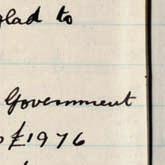 glad to
Government
£1976